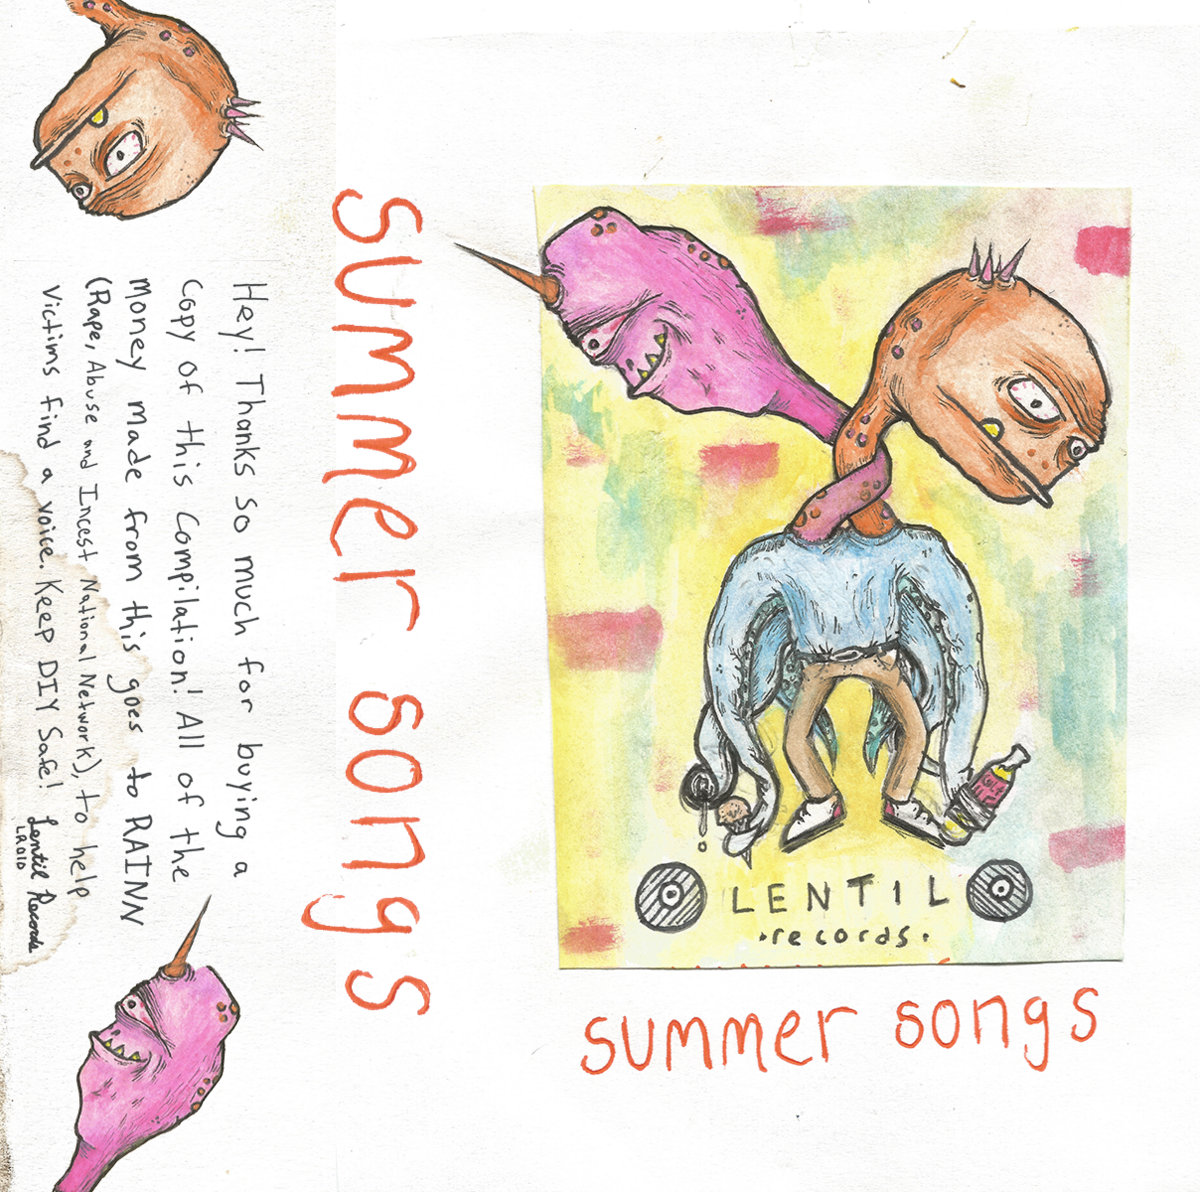 Hey! Thanks so much for buying a
copy of this compilation! All of the
money made from this goes to RAINN
(Rape, Abuse and Incest National Network), to help
victims find a voice. Keep DIY Safe!
Lentil Records
LR010
summer songs
LENTIL
•records•
summer songs